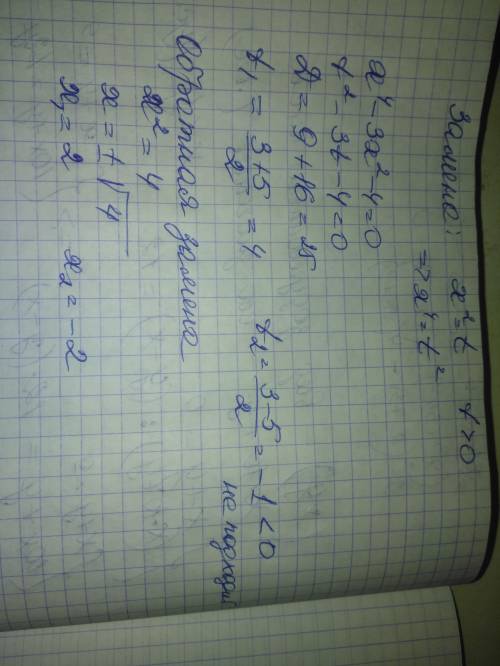 Замена: x² = t t > 0
=> x⁴ = t²
x⁴ - 3x² - 4 = 0
t² - 3t - 4 = 0
D = 9 + 16 = 25
t₁ = (3+5)/2 = 4 t₂ = (3-5)/2 = -1 < 0
не подходит
Обратная замена
x² = 4
x = ±√4
x₁ = 2 x₂ = -2